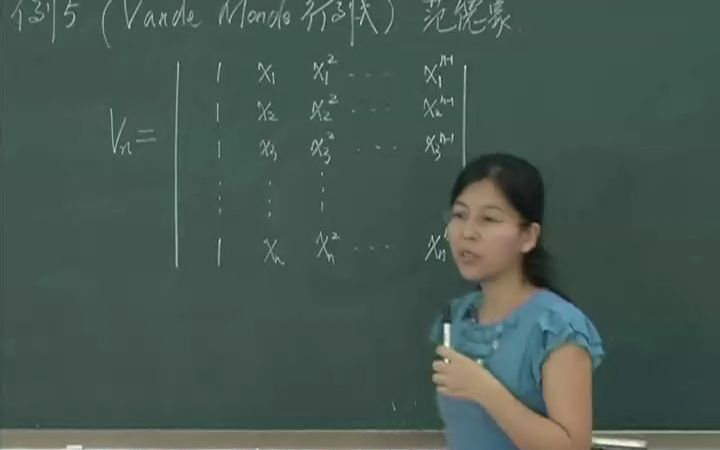 例5 (Vande Monde 行列式) 范德蒙
1 x₁ x₁² ... x₁ⁿ⁻¹
1 x₂ x₂² ... x₂ⁿ⁻¹
Vₙ = 1 x₃ x₃² ... x₃ⁿ⁻¹
⋮ ⋮ ⋮
1 xₙ xₙ² ... xₙ